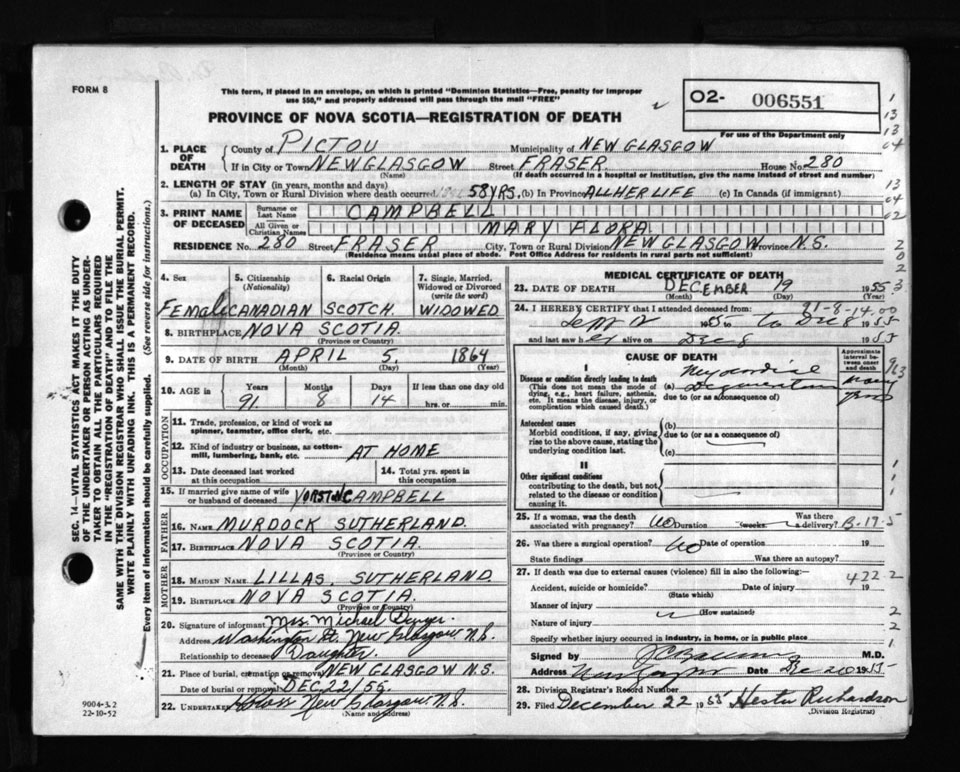 FORM 8
This form, if placed in an envelope, on which is printed "Dominion Statistics—Free, penalty for improper
use $50," and properly addressed will pass through the mail "FREE"
O2- 006551
PROVINCE OF NOVA SCOTIA—REGISTRATION OF DEATH
For use of the Department only
1. PLACE OF DEATH
County of PICTOU Municipality of NEW GLASGOW
If in City or Town NEW GLASGOW Street FRASER House No. 280
(Name) (If death occurred in a hospital or institution, give the name instead of street and number)
2. LENGTH OF STAY (in years, months and days)
(a) In City, Town or Rural Division where death occurred 58 YRS. (b) In Province ALL HER LIFE (c) In Canada (if immigrant)
3. PRINT NAME OF DECEASED
Surname or Last Name CAMPBELL
All Given or Christian Names MARY FLORA
RESIDENCE No. 280 Street FRASER City, Town or Rural Division NEW GLASGOW Province N.S.
(Residence means usual place of abode. Post Office Address for residents in rural parts not sufficient)
4. Sex 5. Citizenship (Nationality) 6. Racial Origin 7. Single, Married, Widowed or Divorced (write the word)
FEMALE CANADIAN SCOTCH. WIDOWED
8. BIRTHPLACE NOVA SCOTIA
(Province or Country)
9. DATE OF BIRTH APRIL 5. 1864
(Month) (Day) (Year)
10. AGE in Years Months Days If less than one day
91. 8 14 hrs. or min.
OCCUPATION
11. Trade, profession, or kind of work as
spinner, teamster, office clerk, etc.
12. Kind of industry or business, as cotton-
mill, lumbering, bank, etc. AT HOME
13. Date deceased last worked at this occupation
14. Total yrs. spent in this occupation
15. If married give name of wife
or husband of deceased CAMPBELL
FATHER
16. NAME MURDOCK SUTHERLAND.
17. BIRTHPLACE NOVA SCOTIA.
(Province or Country)
MOTHER
18. MAIDEN NAME LILLAS. SUTHERLAND
19. BIRTHPLACE NOVA SCOTIA.
(Province or Country)
20. Signature of informant Mrs. Michael
Address Washington St. New Glasgow N.S.
Relationship to deceased Daughter.
21. Place of burial, cremation or removal NEW GLASGOW N.S.
Date of burial or removal DEC. 22/55.
22. UNDERTAKER New Glasgow. N.S.
(Name and address)
MEDICAL CERTIFICATE OF DEATH
23. DATE OF DEATH DECEMBER 19 1955
(Month) (Day) (Year)
24. I HEREBY CERTIFY that I attended deceased from: 91-8-14.00
to Dec 8 1955
and last saw her alive on Dec 8 1955
CAUSE OF DEATH
Approximate interval between onset and death
I
Disease or condition directly leading to death
(This does not mean the mode of
dying, e.g., heart failure, asthenia,
etc. It means the disease, injury, or
complication which caused death.)
(a) Myocardial Degeneration many years
due to (or as a consequence of)
Antecedent causes
Morbid conditions, if any, giving
rise to the above cause, stating the
underlying condition last.
(b)
due to (or as a consequence of)
(c)
II
Other significant conditions
contributing to the death, but not
related to the disease or condition
causing it.
25. If a woman, was the death
associated with pregnancy? No Duration weeks Was there a delivery? B-17-5
26. Was there a surgical operation? No Date of operation 19
State findings Was there an autopsy?
27. If death was due to external causes (violence) fill in also the following:
422-2
Accident, suicide or homicide? Date of injury 19
(State which)
Manner of injury
(How sustained)
Nature of injury
Specify whether injury occurred in industry, in home, or in public place
Signed by M.D.
Address New Glasgow Date Dec 20 1955
28. Division Registrar's Record Number
29. Filed December 22 1955 Hester Richardson
(Division Registrar)
SEC. 14—VITAL STATISTICS ACT MAKES IT THE DUTY
OF THE UNDERTAKER OR PERSON ACTING AS UNDER-
TAKER TO OBTAIN ALL THE PARTICULARS REQUIRED
IN THE "REGISTRATION OF DEATH" AND TO FILE THE
SAME WITH THE DIVISION REGISTRAR WHO SHALL ISSUE THE BURIAL PERMIT.
WRITE PLAINLY WITH UNFADING INK. THIS IS A PERMANENT RECORD.
Every item of information should be carefully supplied. (See reverse side for instructions.)
9004-3.2
22-10-52
1
13
13
04
13
04
02
2
0
2
3
963
1
1
1
2
2
1